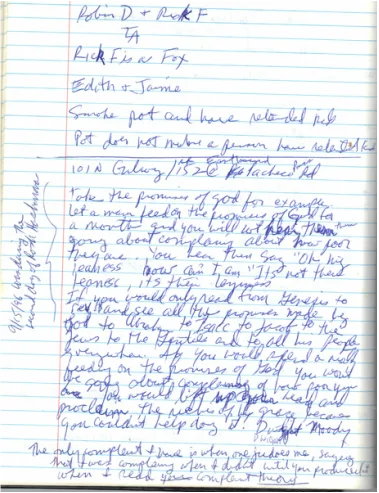 Robin D + Rick F
TA
Rick F is a Fox
Edith + Jaime
Smoke pot and have retarded kids
Pot does not make a person have retarded kids
101 N Gilroy / 152 E Pacheco
Take the promises of god for example
let a man feed on the promises of God for
a month and you will not hear them
going about complaing about how poor
they are. You hear them say "Oh my
leaness how can I am" "It's not there
leaness, it's their
If you would only read from Genesis to
Rev and see all the promises made by
god to Isacc to Jacob to the
Jews to the Gentiles and to all his people
everywhere. If you would spend a month
feeding on the promises of God you would
be going about complaing of how poor you
are you would lift up your head and
proclaim the riches of his grace because
you couldn't help doing it. Dwight Moody
The only complaint I have is when one judges me, saying
that I was complaing when I didn't until you
when I read complaint theory
9/15/06
second day of Rosh Hashana